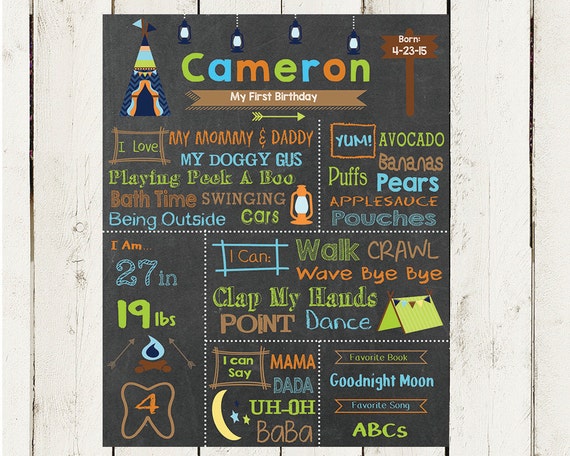 Born:
4-23-15
Cameron
My First Birthday
I Love
MY MOMMY & DADDY
MY DOGGY GUS
Playing Peek A Boo
Bath Time SWINGING
Being Outside Cars
YUM! AVOCADO
Bananas
Puffs Pears
APPLESAUCE
Pouches
I Am...
27in
19 lbs
4
I Can: Walk CRAWL
Wave Bye Bye
Clap My Hands
POINT Dance
I can
Say
MAMA
DADA
UH-OH
BaBa
Favorite Book
Goodnight Moon
Favorite Song
ABCs